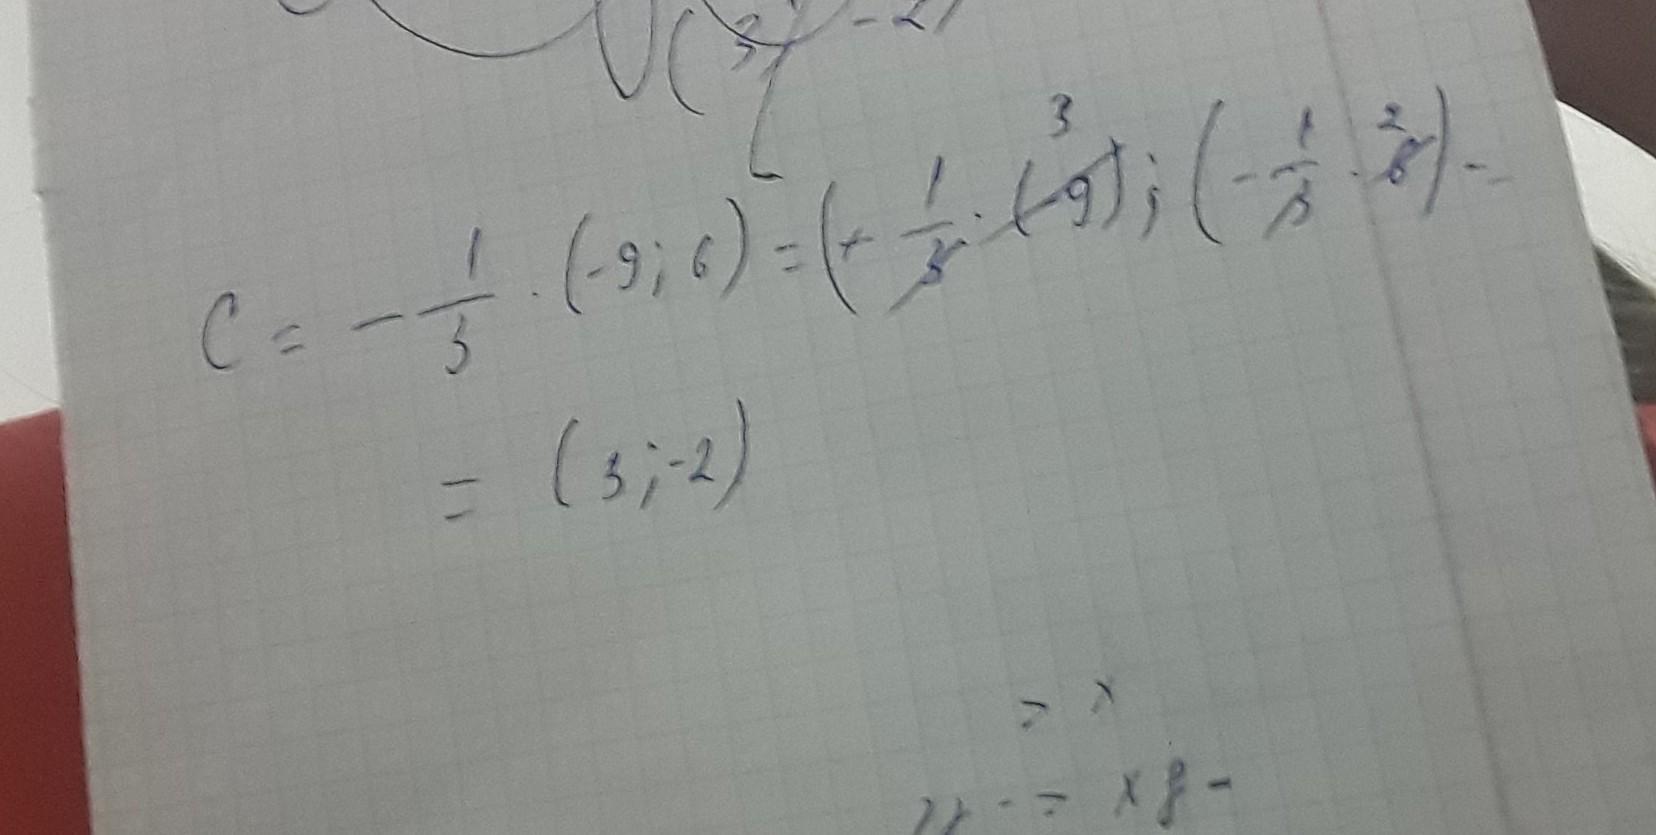 (3 -2)
C = - 1/3 · (-9; 6) = (+ 1/3 · (-9); (- 1/3 · 6) =
3 2
= (3; -2)
= x